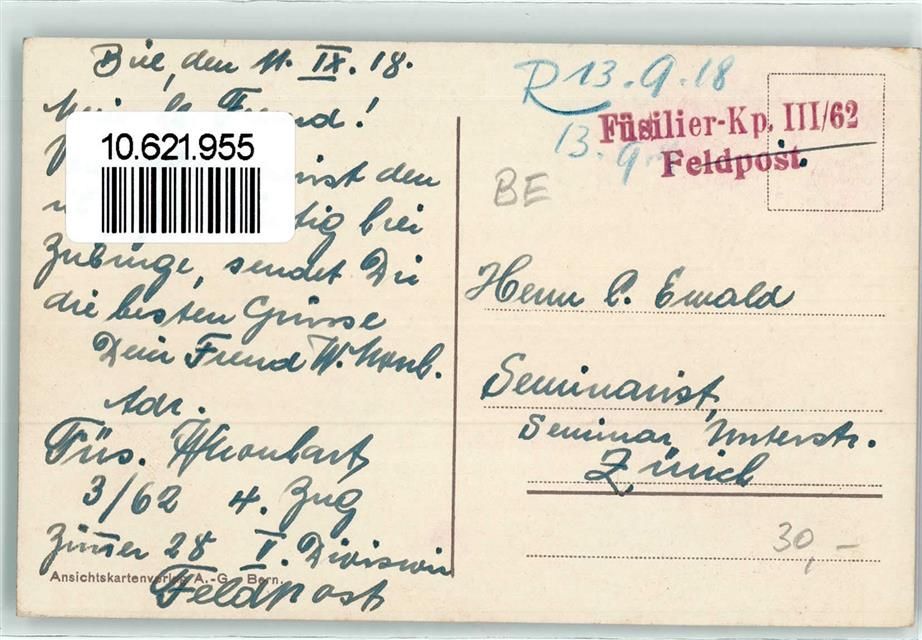 Biel, den 11. IX. 18.
Mein Freund!
10.621.955
den
brei
Zubringe, sendet Dir
die besten Grüsse
Dein Freund W.
Adr.
Füs.
3/62 4. Zug
Zimmer 28 V. Division
Feldpost
Ansichtskartenverlag A.-G. Bern.
R 13.9.18
13.9.
Füsilier-Kp. III/62
Feldpost.
BE
Herrn C. Ewald
Seminarist,
Seminar, Unterstr.
Zürich
30,-